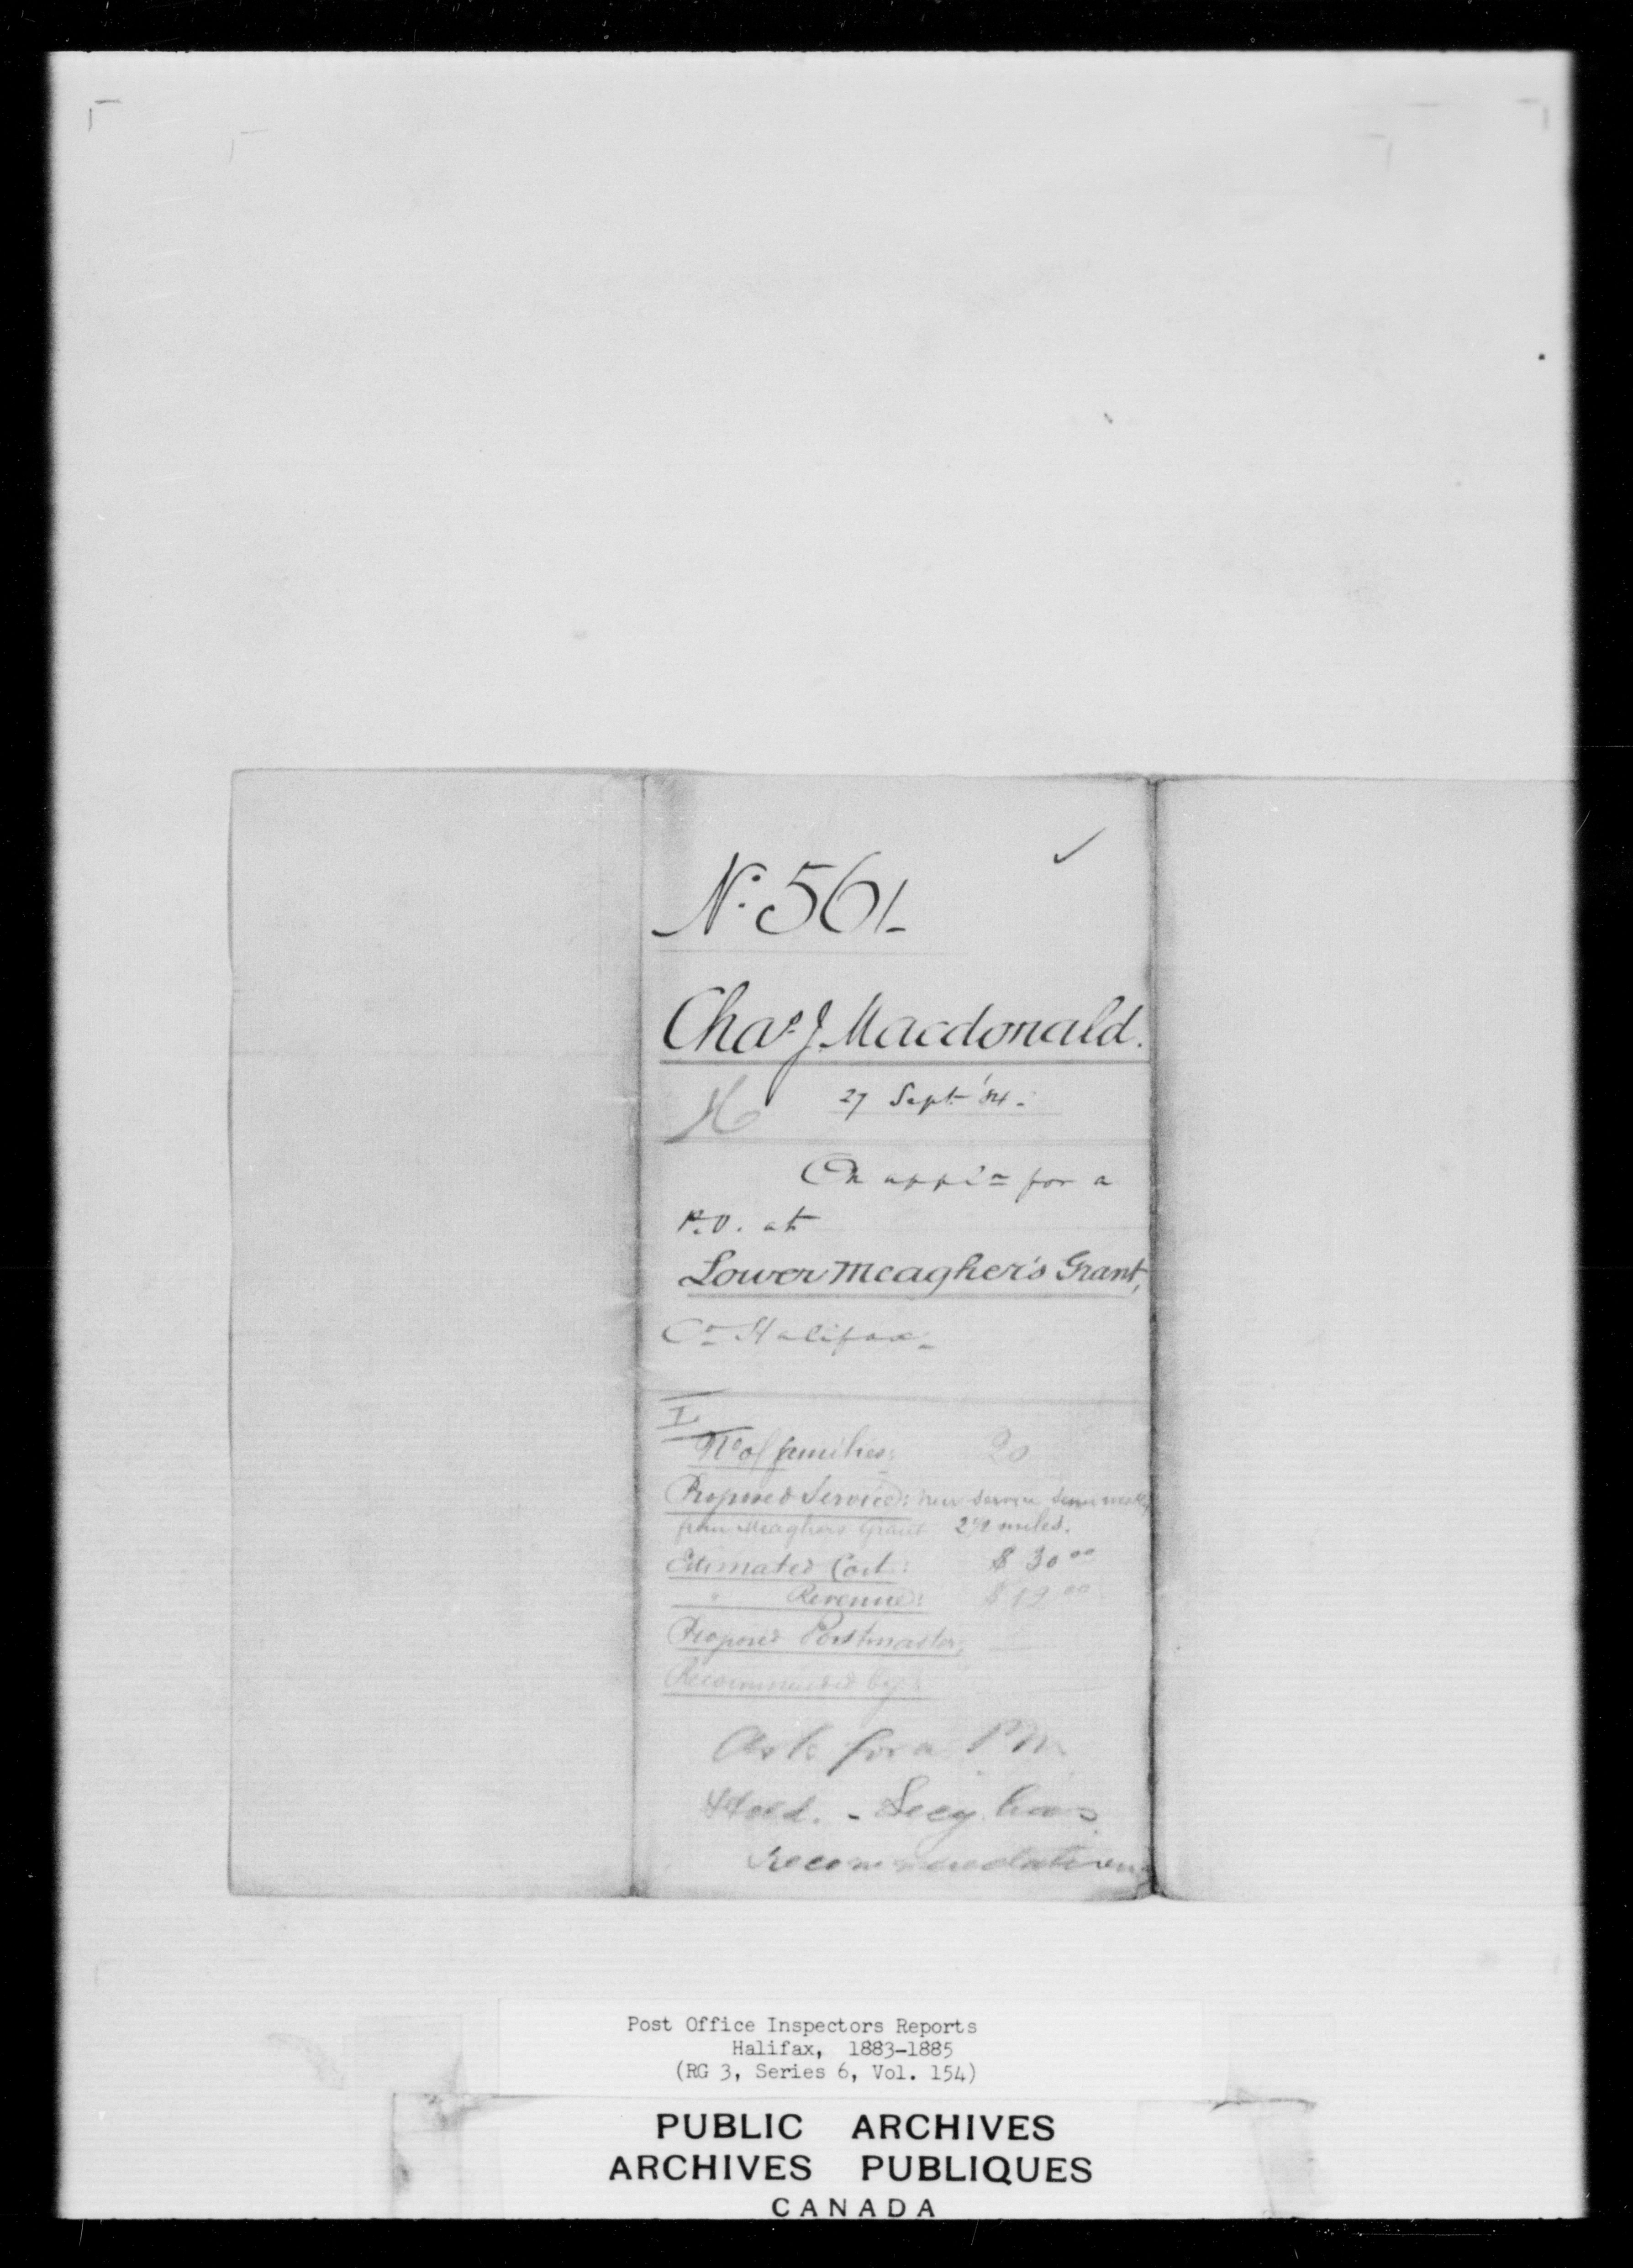 ✓
No. 561-
Chas. J. Macdonald.
H 27 Sept '84.
On appl'n for a
P.O. at
Lower Meagher's Grant,
Co. Halifax.
I
No of families: 20
Proposed Service: New Service Semi weekly
from Meaghers Grant 2 1/2 miles.
Estimated Cost: $ 30 00
" Revenue: $ 12 00
Proposed Postmaster, —
Recommended by: —
Ask for a P M
Hold. - Secy has
recommendation
Post Office Inspectors Reports
Halifax, 1883-1885
(RG 3, Series 6, Vol. 154)
PUBLIC ARCHIVES
ARCHIVES PUBLIQUES
CANADA